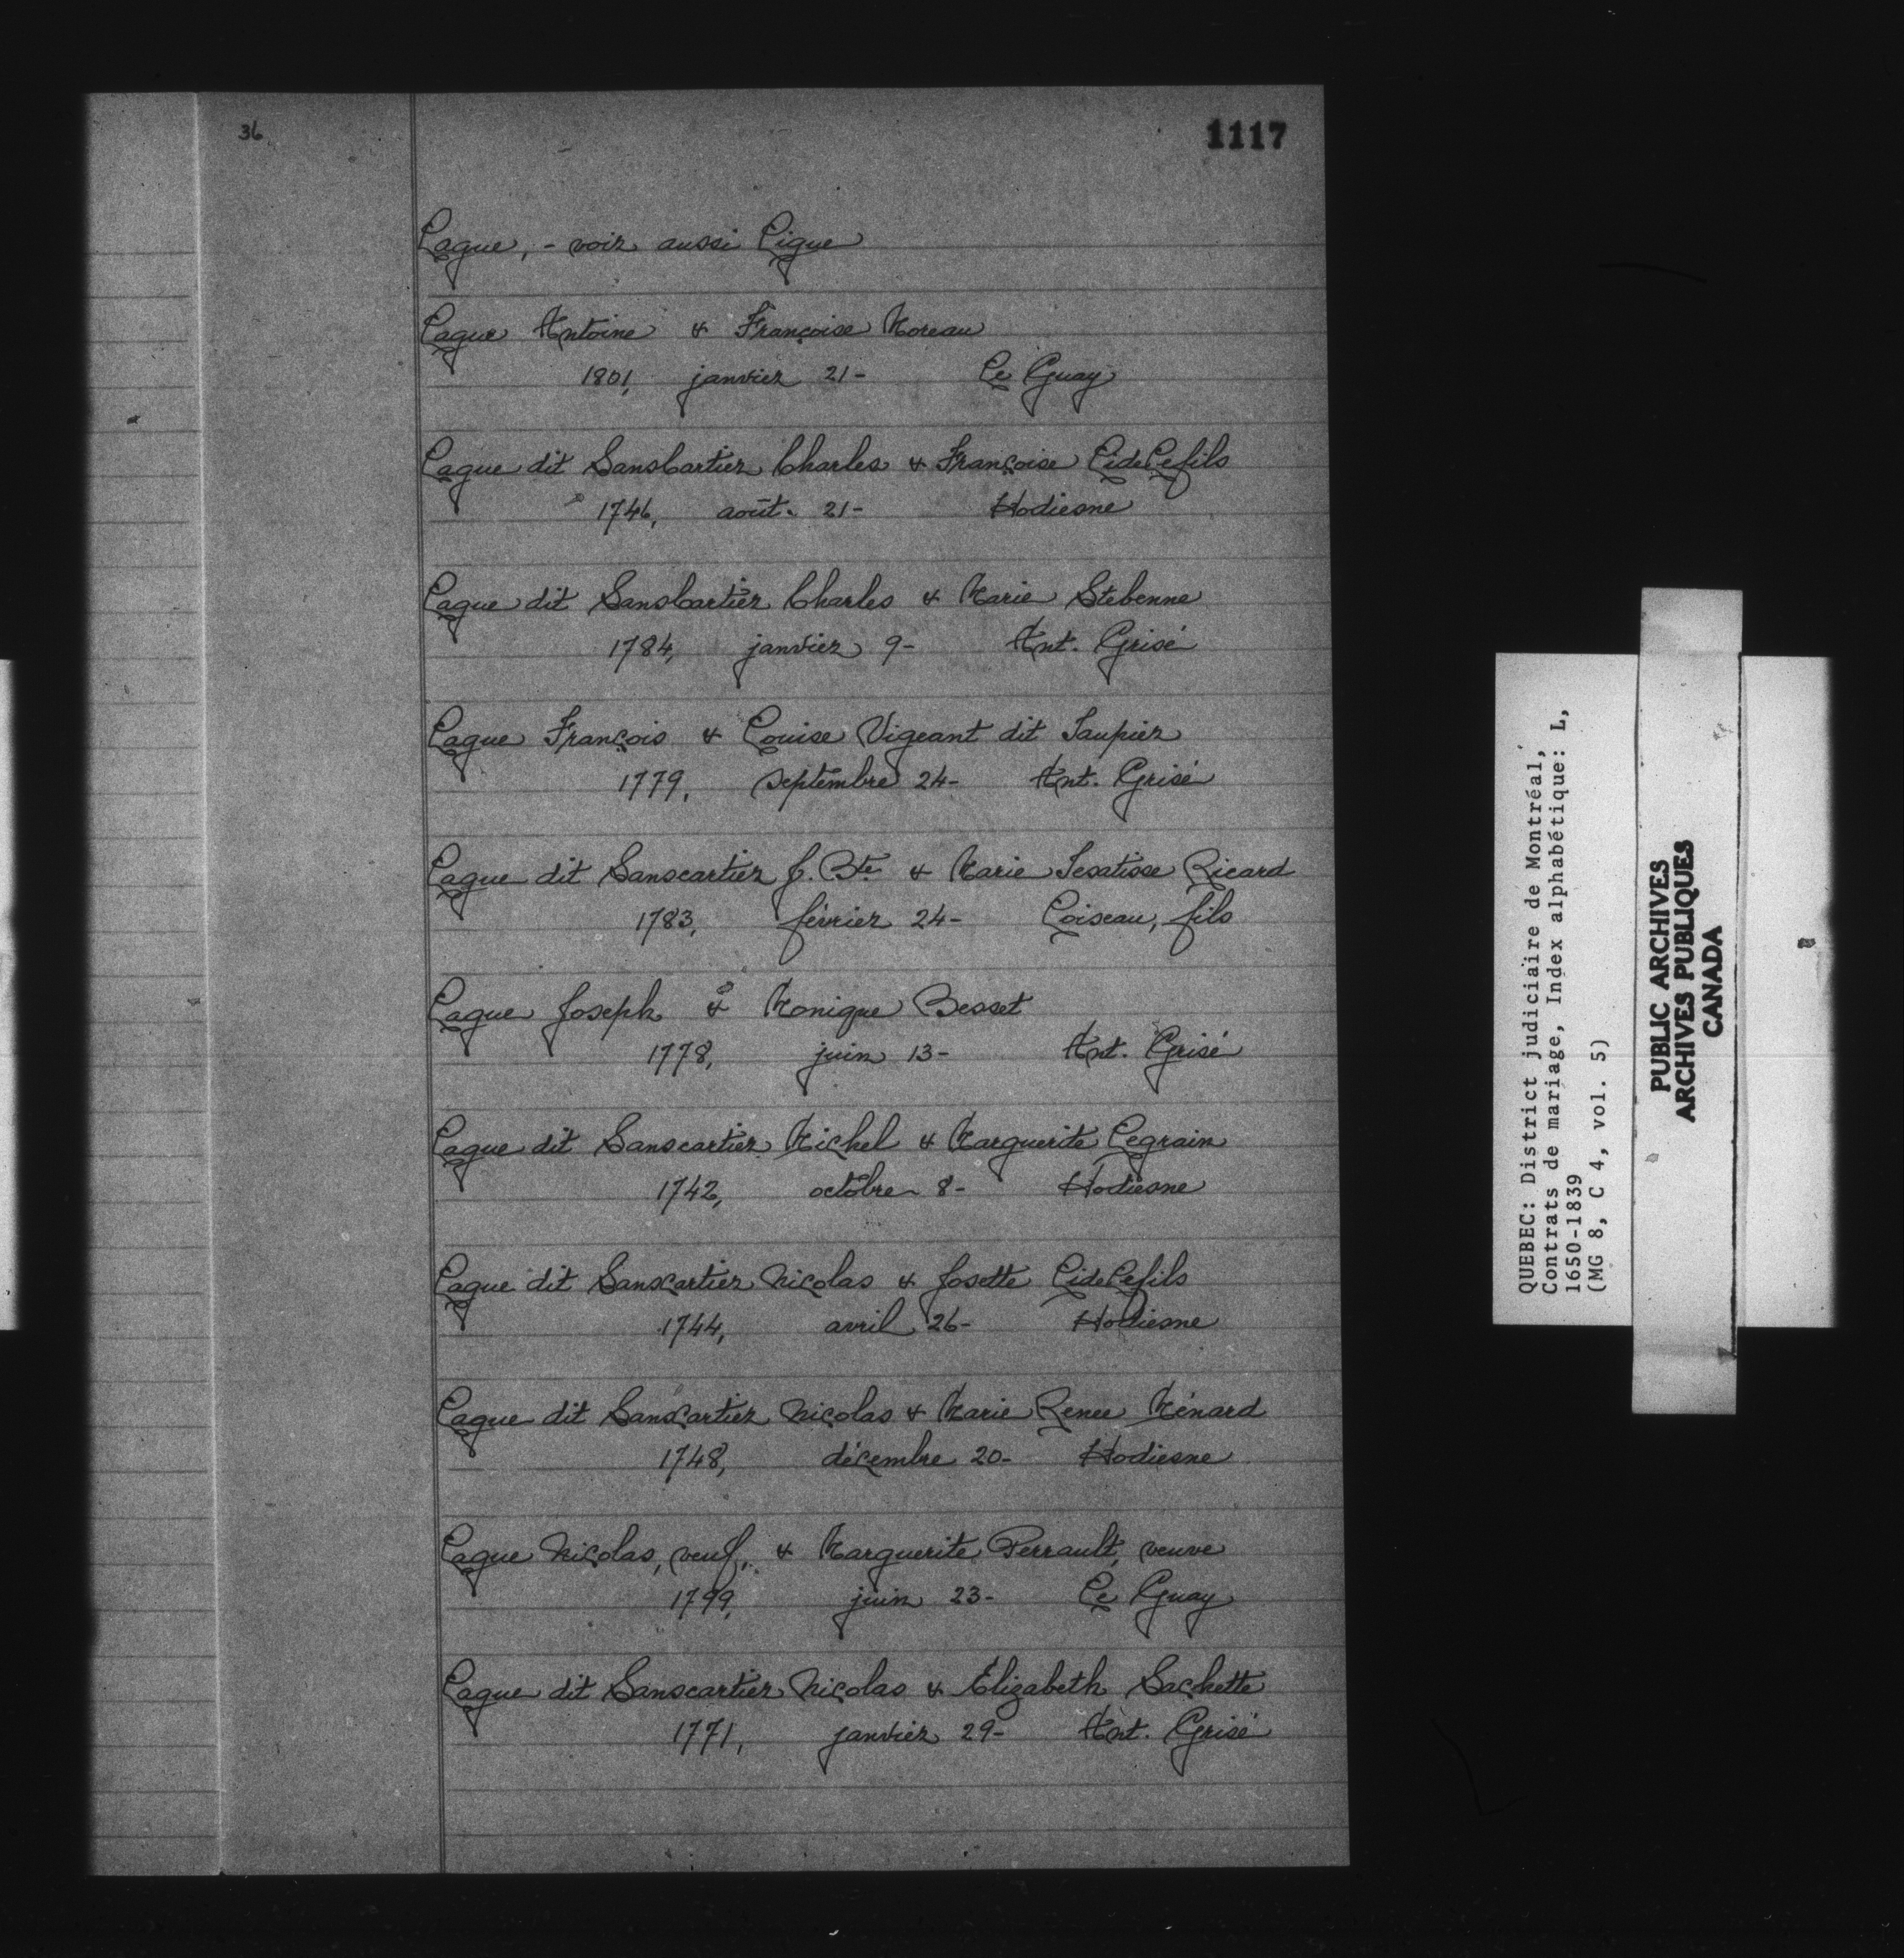 36
1117
Lague, - voir aussi Ligue
Lague Antoine & Françoise Moreau
1801, janvier 21- Le Guay
Lague dit SansCartier Charles & Françoise LideLefils
1746, août 21- Hodiesne
Lague dit SansCartier Charles & Marie Stebenne
1784, janvier 9- Ant. Grisé
Lague François & Louise Vigeant dit Taupier
1779, septembre 24- Ant. Grisé
Lague dit Sanscartier J. Bte & Marie Tesatisse Ricard
1783, février 24- Loiseau, fils
Lague Joseph & Monique Besset
1778, juin 13- Ant. Grisé
Lague dit Sanscartier Michel & Marguerite Legrain
1742, octobre 8- Hodiesne
Lague dit Sanscartier Nicolas & Josette LideLefils
1744, avril 26- Hodiesne
Lague dit SansCartier Nicolas & Marie Renee Ménard
1748, décembre 20- Hodiesne
Lague Nicolas, veuf, & Marguerite Perrault, veuve
1799, juin 23- Le Guay
Lague dit Sanscartier Nicolas & Élizabeth Sachette
1771, janvier 29- Ant. Grisé
QUEBEC: District judiciaire de Montréal,
Contrats de mariage, Index alphabétique: L,
1650-1839
(MG 8, C 4, vol. 5)
PUBLIC ARCHIVES
ARCHIVES PUBLIQUES
CANADA